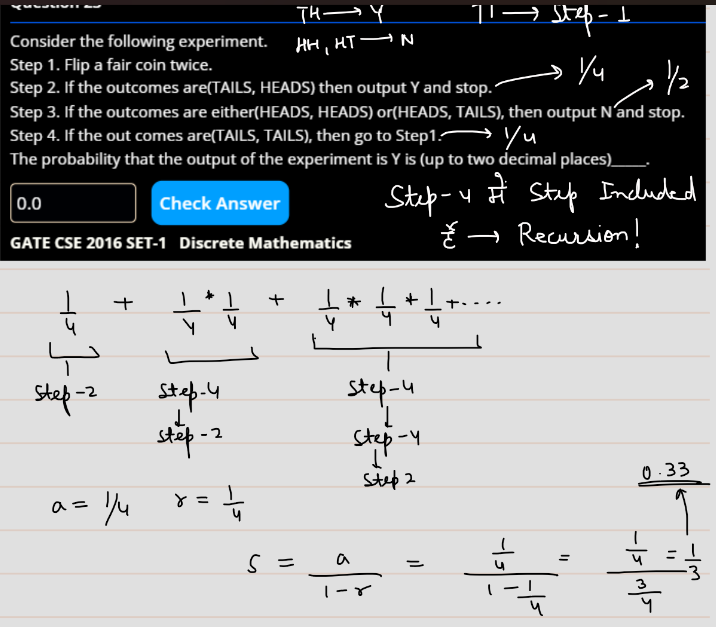 Question 25
TH → Y TT → Step-1
Consider the following experiment. HH, HT → N
Step 1. Flip a fair coin twice.
Step 2. If the outcomes are(TAILS, HEADS) then output Y and stop. → 1/4 → 1/2
Step 3. If the outcomes are either(HEADS, HEADS) or(HEADS, TAILS), then output N and stop.
Step 4. If the out comes are(TAILS, TAILS), then go to Step1. → 1/4
The probability that the output of the experiment is Y is (up to two decimal places)_____.
0.0 Check Answer Step-4 में Step Included
है → Recursion!
GATE CSE 2016 SET-1 Discrete Mathematics
1/4 + 1/4 * 1/4 + 1/4 * 1/4 * 1/4 + ....
Step-2 Step-4 Step-4
↓ Step-2 ↓ Step-4
↓ Step 2
0.33
a = 1/4 r = 1/4
S = a/(1-r) = (1/4)/(1-1/4) = (1/4)/(3/4) = 1/3